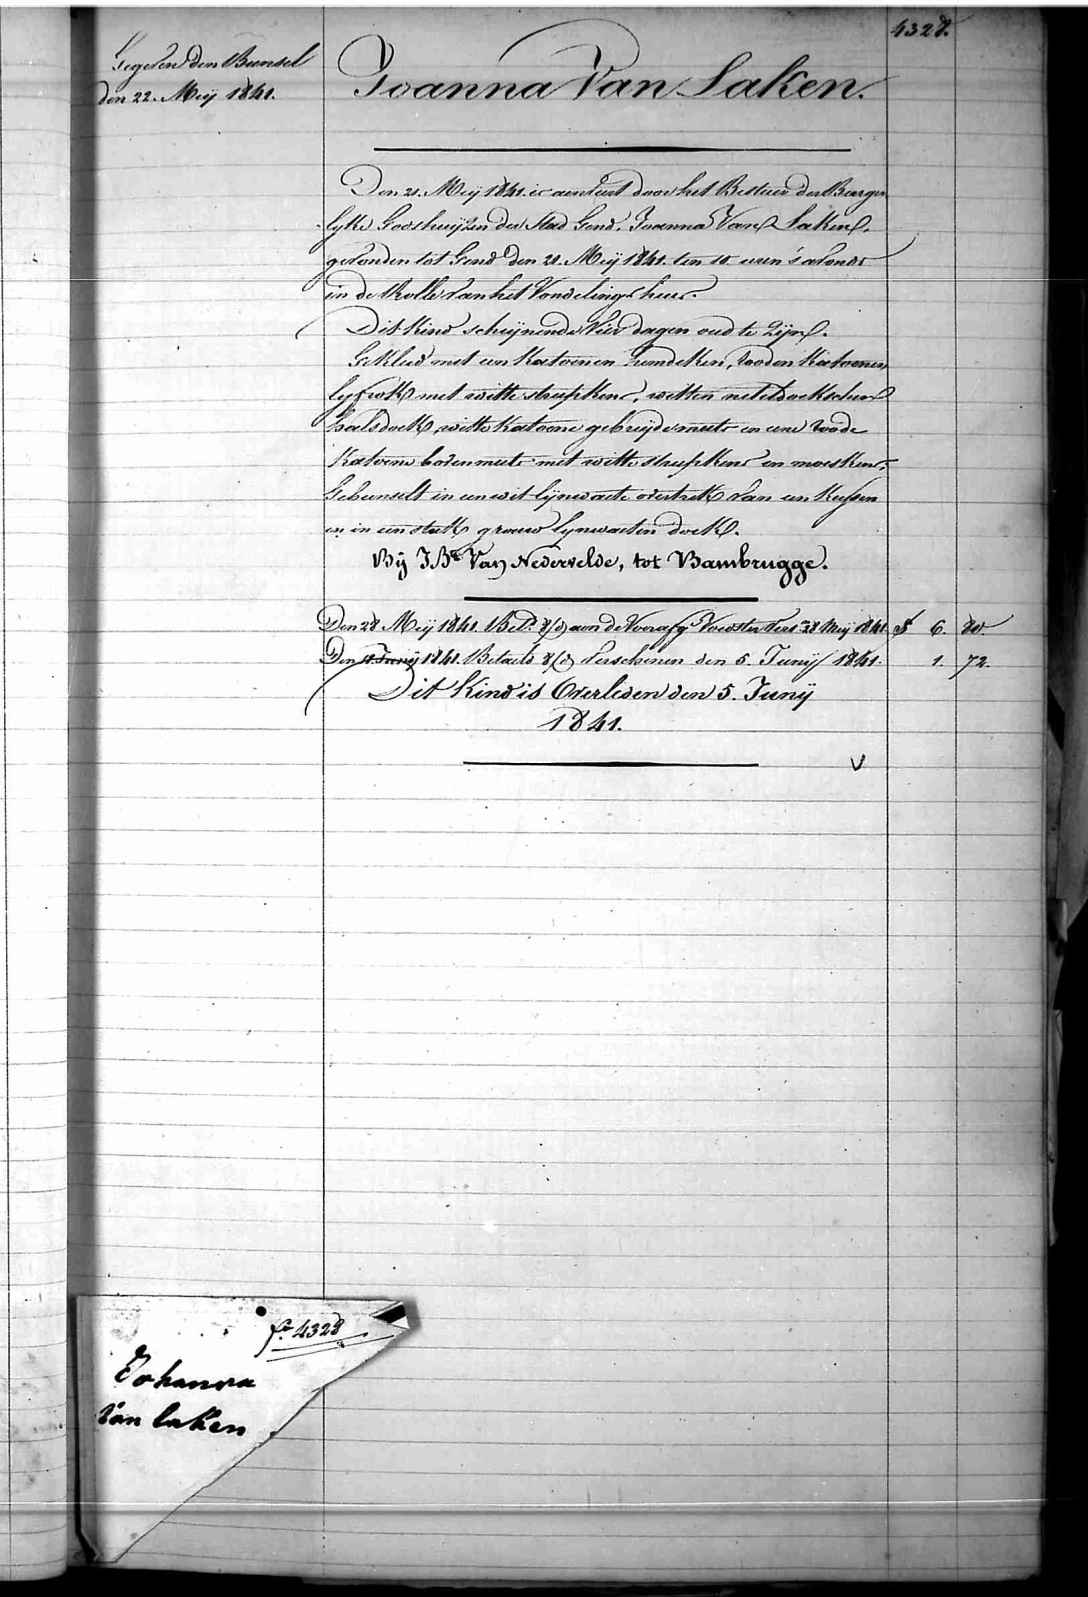 4328.
Gegeven den Bunsel
den 22. Meij 1841.
Joanna Van Laken.
Den 21. Meij 1841. is aenveird door het Bestuer der Burger
lyke Godshuijzen der Stad Gend, Joanna Van Laken,
gevonden tot Gend den 20. Meij 1841. ten 10 uren 's avonds
in de Rolle van het Vondelingshuis.
Dit Kind schijnende Vier dagen oud te Zijn.
Gekleed met een Katoenen hemdeken, rooden Katoenen
lyfrok met witte streepkens, witten neteldoekschen
halsdoek, witte Katoene gebrijde muts en eene roode
Katoene bovenmuts met witte streepkens en moeskens,
Gebunselt in een wit lijnwaete overtrek van een Kussen
en in een stuk grauw lynwaeten doek.
Bij J. Bte Van Nedervelde, tot Bambrugge.
Den 28 Meij 1841. Bet. aen de Voorafg. Voedster 28 Meij 1841. f 6. 80.
Den Junij 1841. Betaeld Verschenen den 5. Junij 1841. 1. 72.
Dit Kind is Overleden den 5. Junij
1841.
V
fo. 4328
Johanna
van laken